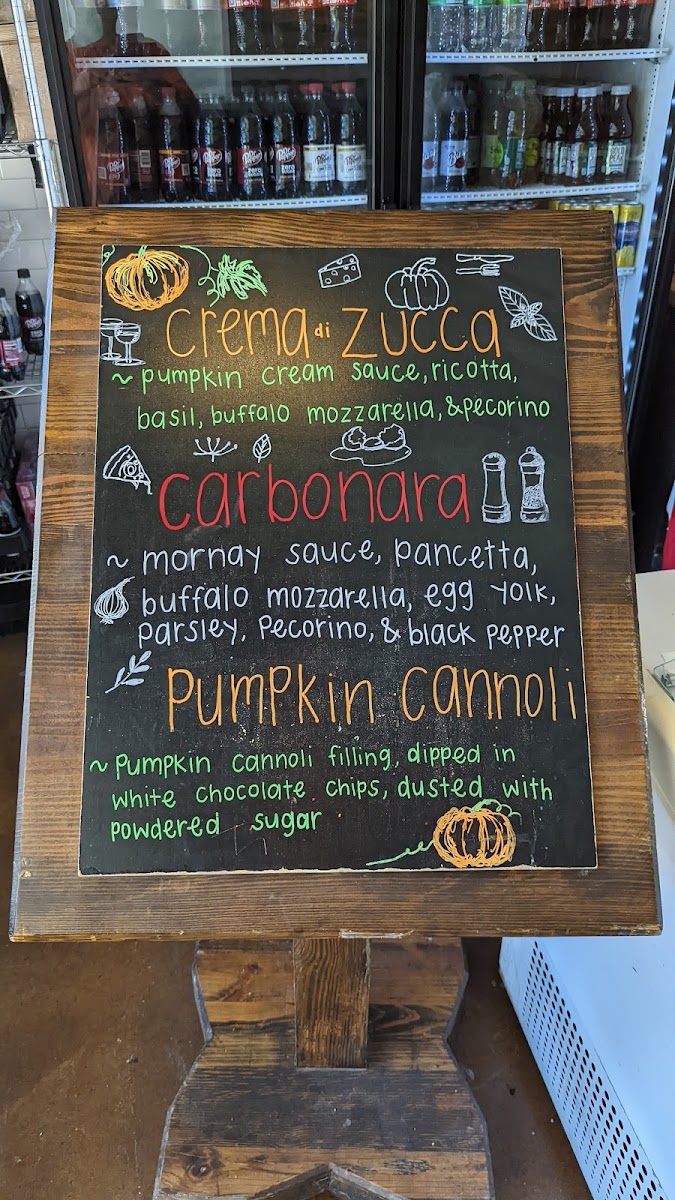 crema di zucca
~ pumpkin cream sauce, ricotta,
basil, buffalo mozzarella, & pecorino
carbonara
~ mornay sauce, pancetta,
buffalo mozzarella, egg yolk,
parsley, pecorino, & black pepper
pumpkin cannoli
~ pumpkin cannoli filling, dipped in
white chocolate chips, dusted with
powdered sugar